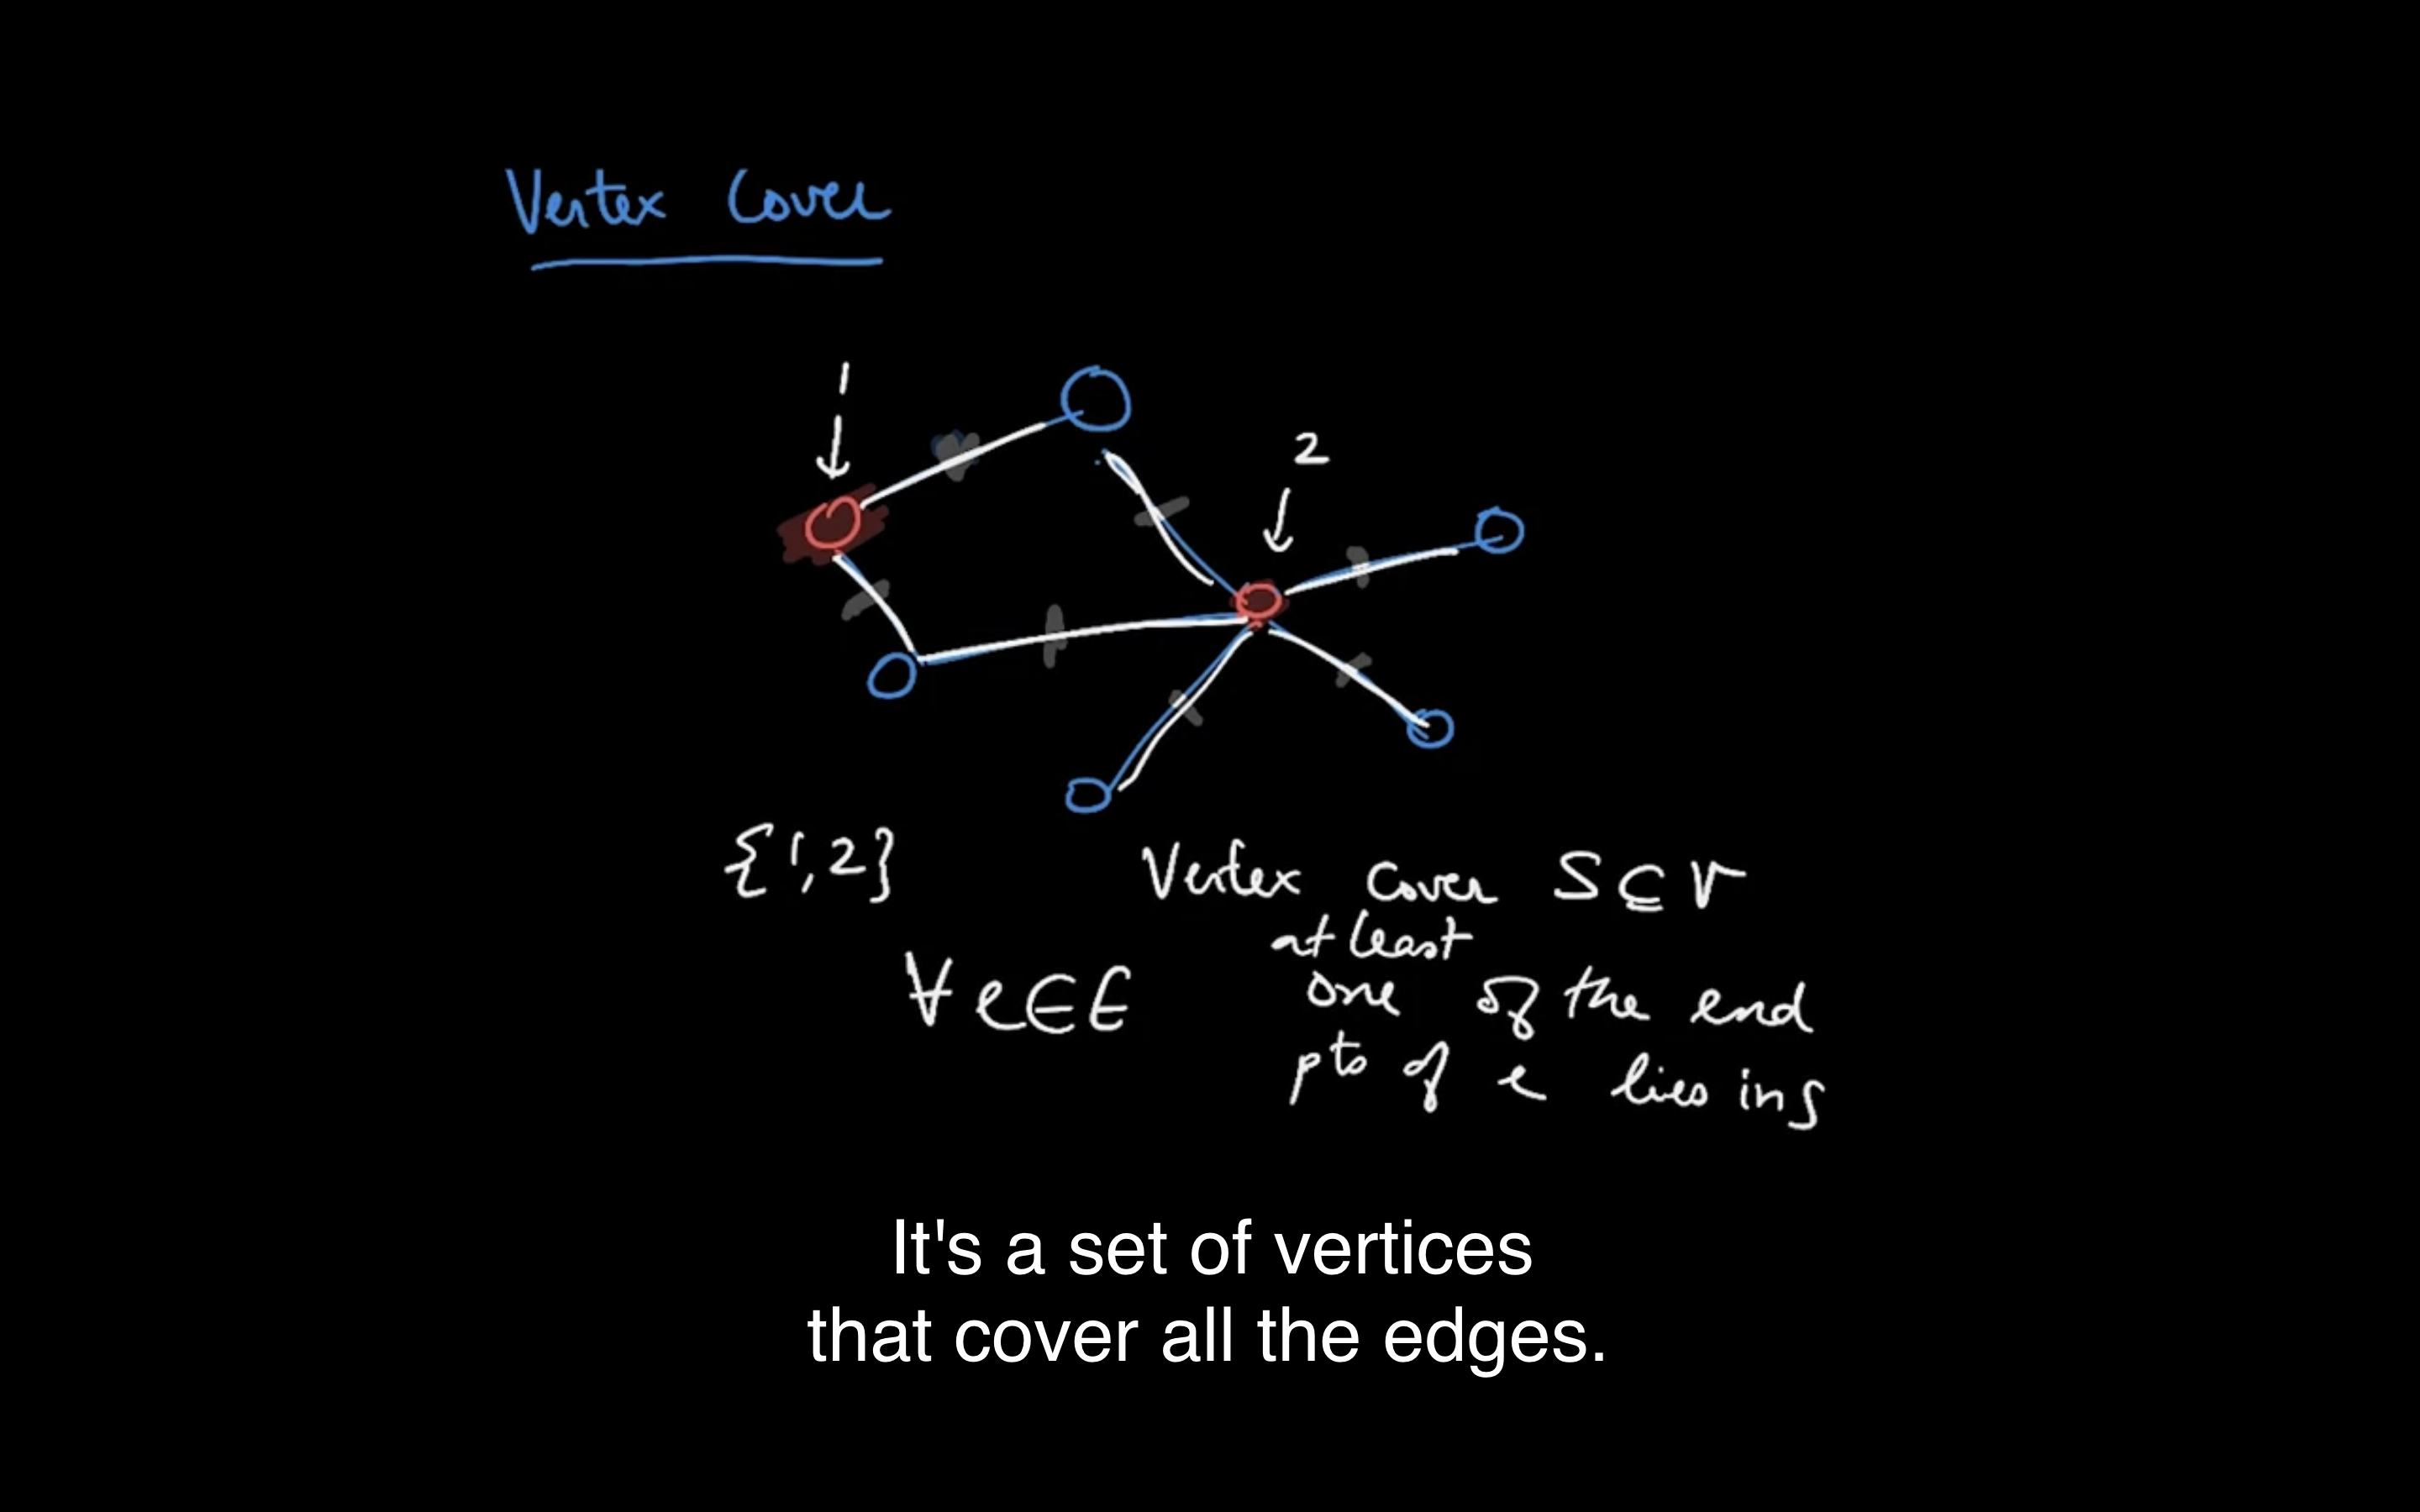 Vertex Cover
1
2
{1,2}
Vertex Cover S ⊆ V
at least
∀ e ∈ E one of the end
pts of e lies in S
It's a set of vertices
that cover all the edges.